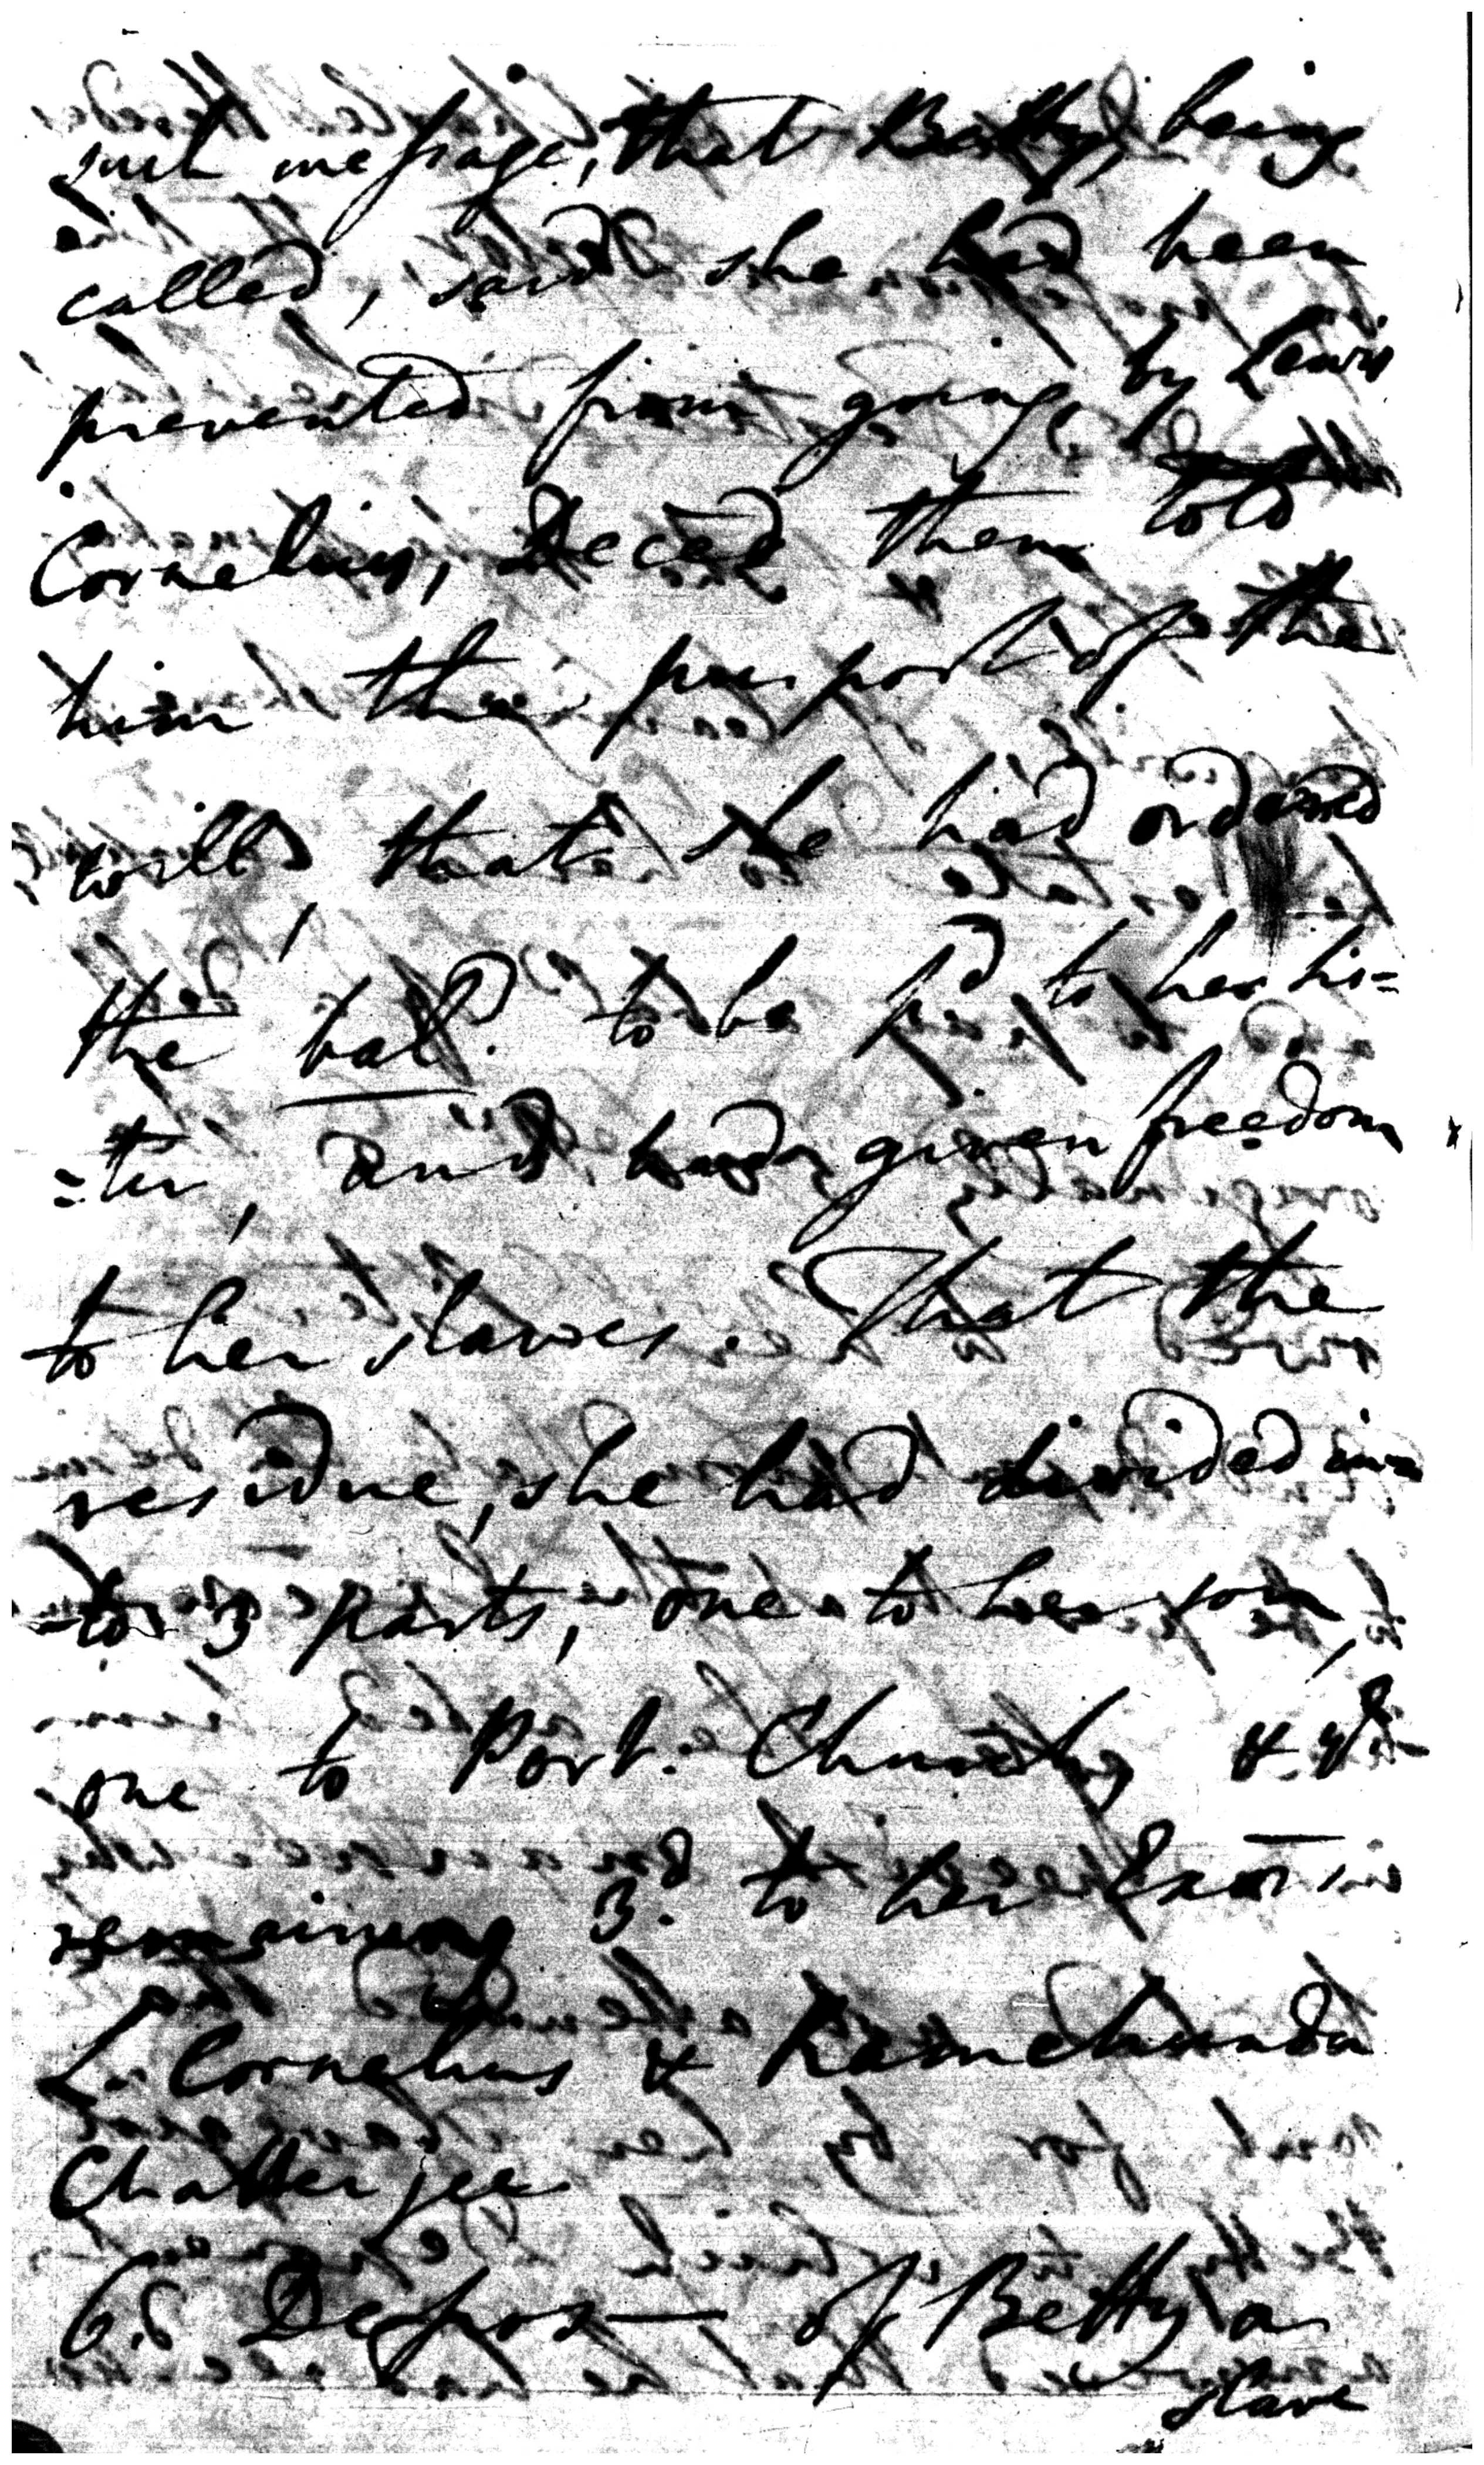 such message, that Betty, being
called, said she had been
prevented from going, by Lewis
Cornelius, Deced. then told
him the purport of the
will, that she had ordered
the bal. to be pd to her sis=
=ter, and had given freedom
to her slaves. That the
residue, she had divided in=
=to 3 parts, one to her son,
one to Port. Church, & ye
remaining 3d. to her Exors
L. Cornelius & Ramchunder
Chatterjee
6.th Depos— of Betty a
slave